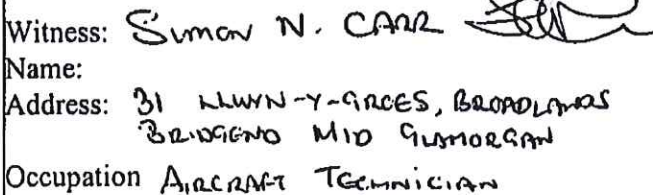 Witness: Simon N. CARR
Name:
Address: 31 LLWYN-Y-GROES, BROADLANDS
BRIDGEND MID GLAMORGAN
Occupation AIRCRAFT TECHNICIAN